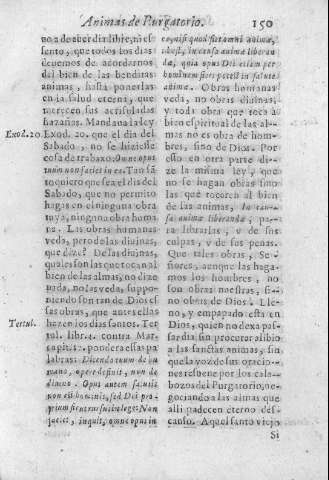 Animas de Purgatorio. 150
no a de aber dia libre, ni es
sento, que todos los dias
deuemos de acordarnos
del bien de las benditas
animas, hasta ponerlas
en la salud eterna, que
merecen sus acrisoladas
hazañas. Mandaua la ley
Exod. 20. Exod. 20. que el dia del
Sabado, no se hiziesse
cosa de trabaxo: Omne opus
tuum non facies in eo. Tan sã
to quiero que sea el dia del
Sabado, que no permito
hagas en el ninguna obra
tuya, ninguna obra huma
na. Las obras humanas
veda, pero de las diuinas,
que dize? De las diuinas,
quales son las que tocan al
bien de las almas, no dize
nada, no las veda, suppo-
niendo son tan de Dios es
sas obras, que antes ellas
Tertul. hazen los dias santos. Ter
tul. libr. 4. contra Mar-
cap. 12. pondera essas pa
labras: Dicendo tuum de hu
mano, opere definit, non de
diuino. Opus autem salutis
non est hominis, sed Dei pro-
prium
facies, inquit, omne opus in
non
animæ,
idest, in causa animæ liberan
dæ, quia opus Dei etiam per
hominum fieri potest in salute
animæ. Obras humanas
veda, no obras diuinas,
y toda obra que toca à
bien espiritual de las al-
mas no es obra de hom-
bres, sino de Dios. Por
esso en otra parte di-
ze la misma ley, que
no se hagan obras sino
las que tocaren al bien
de las animas, In cau-
sa animæ liberandæ, pa-
ra librarlas, y de sus
culpas, y de sus penas.
Que tales obras, Se-
ñores, aunque las haga-
mos los hombres, no
son obras nuestras, si-
no obras de Dios. Lle-
no, y empapado esta en
Dios, quien no dexa pas-
sar dia sin procurar alibio
a las sanctas animas, sin
que la voz de sus oracio-
nes resuene por los cala-
bozos del Purgatorio, ne-
gociando a las almas que
alli padecen eterno des-
canso. Aquel santo viejo
Si